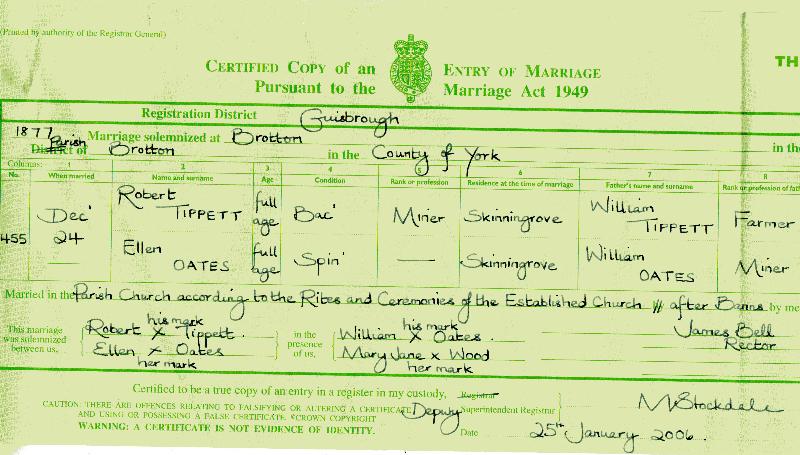 (Printed by authority of the Registrar General)
CERTIFIED COPY of an ENTRY OF MARRIAGE
Pursuant to the Marriage Act 1949
TH
Registration District Guisbrough
1877 Marriage solemnized at Brotton
Parish District of Brotton in the County of York in the
Columns: 1 2 3 4 5 6 7 8
No. When married Name and surname Age Condition Rank or profession Residence at the time of marriage Father's name and surname Rank or profession of fath
455 Dec' 24 Robert TIPPETT full age Bac' Miner Skinningrove William TIPPETT Farmer
Ellen OATES full age Spin' — Skinningrove William OATES Miner
Married in the Parish Church according to the Rites and Ceremonies of the Established Church after Banns by me
This marriage was solemnized between us, Robert his mark x Tippett in the presence of us, William his mark x Oates James Bell
Ellen x Oates her mark Mary Jane x Wood her mark Rector
Certified to be a true copy of an entry in a register in my custody, Registrar
Deputy Superintendent Registrar M Stockdale
CAUTION: THERE ARE OFFENCES RELATING TO FALSIFYING OR ALTERING A CERTIFICATE
AND USING OR POSSESSING A FALSE CERTIFICATE. ©CROWN COPYRIGHT
WARNING: A CERTIFICATE IS NOT EVIDENCE OF IDENTITY.
Date 25th January 2006.